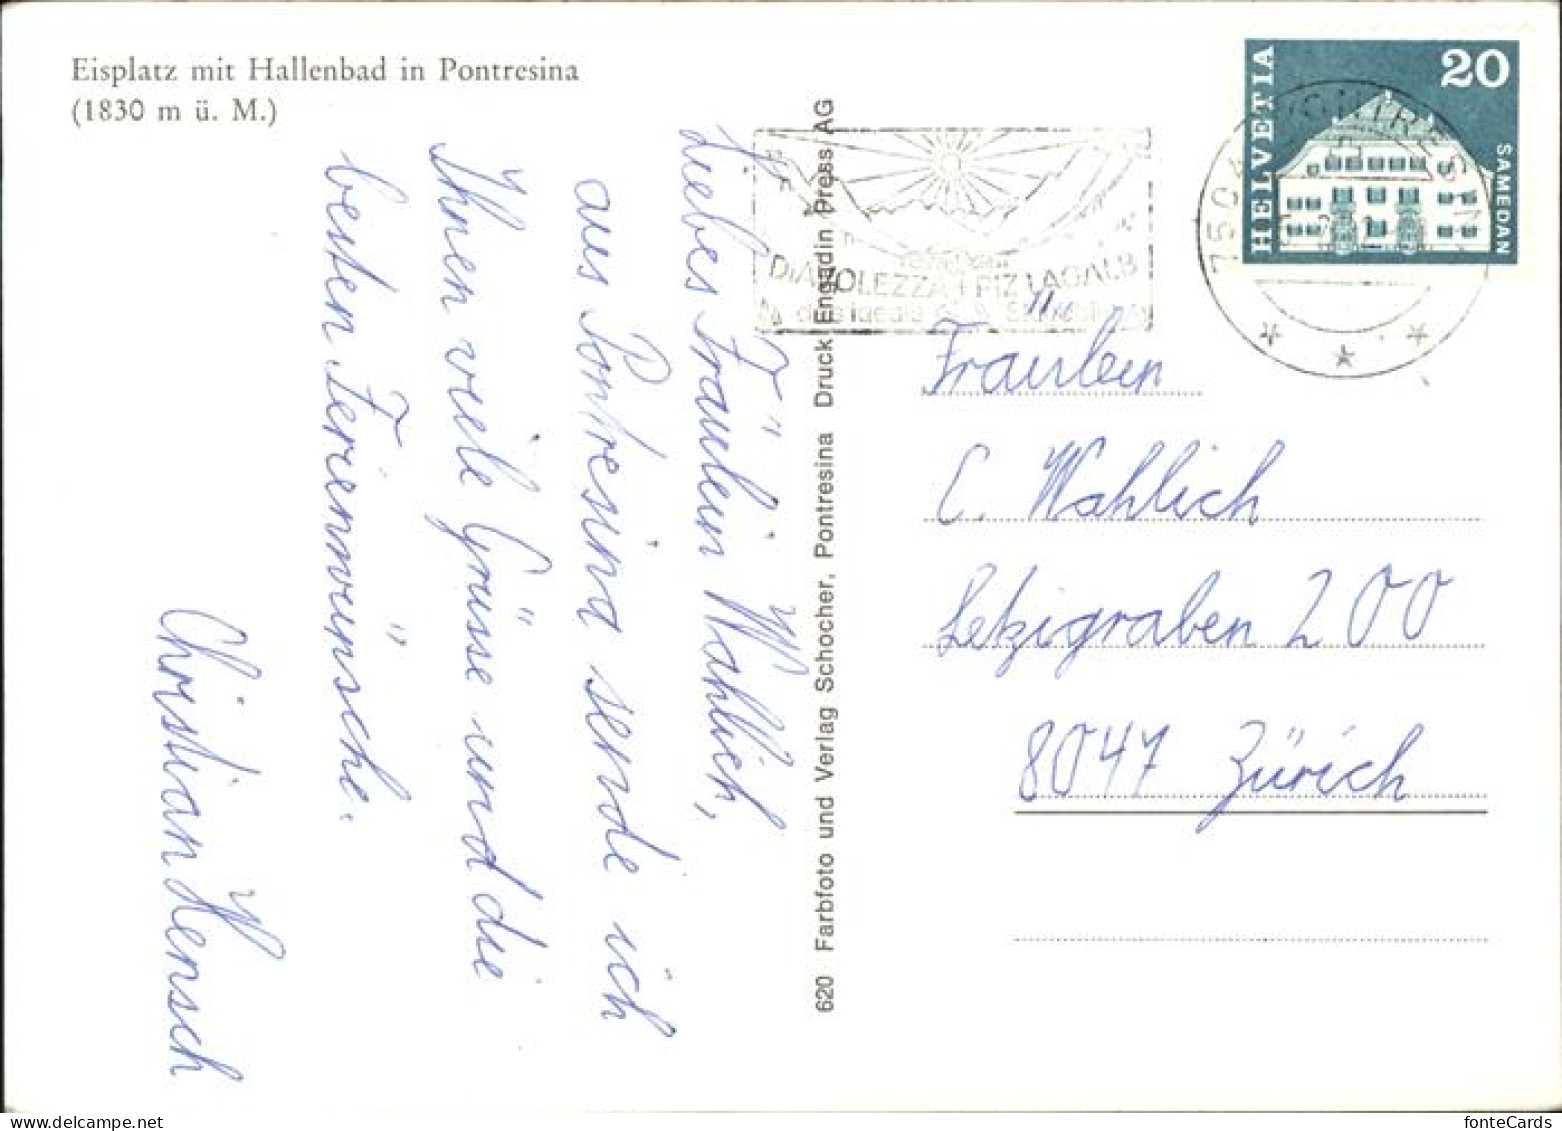 Eisplatz mit Hallenbad in Pontresina
(1830 m ü. M.)
Liebes Fräulein Wahlich,
aus Pontresina sende ich
Ihnen viele Grüsse und die
besten Ferienwünsche.
Christian Hensch
620 Farbfoto und Verlag Schocher, Pontresina Druck Engadin Press AG
DIAVOLEZZA + PIZ LAGALB
HELVETIA
20
SAMEDAN
7504 PONTRESINA
Fräulein
C. Wahlich
Letzigraben 200
8047 Zürich
fonteCards